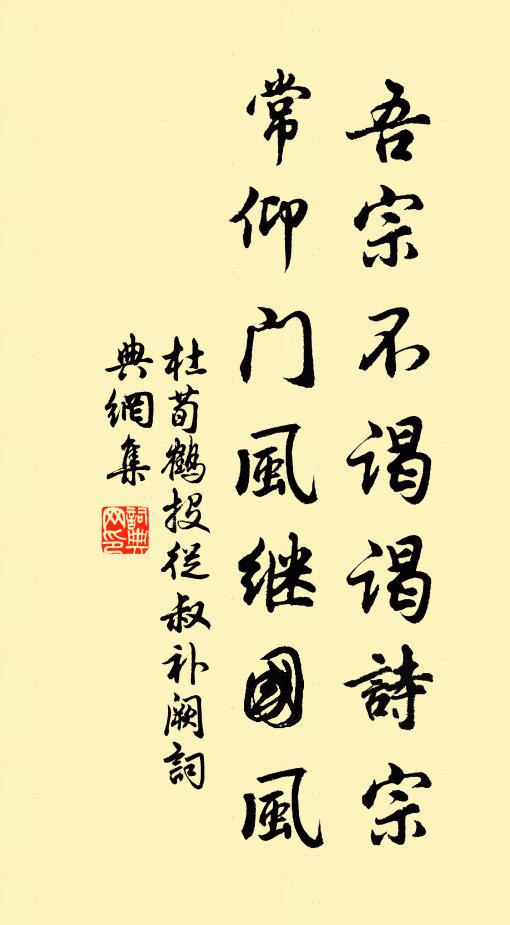 吾宗不谒谒詩宗
常仰门風继國風
杜荀鶴投從叔补阙詞
典網集
詞典
网印